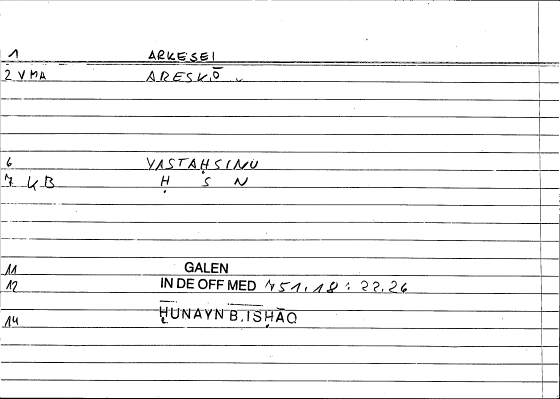 1 ARKESEI
2 VMA ARESKŌ
6 YASTAḤSINU
7 KB Ḥ S N
11 GALEN
12 IN DE OFF MED 751.18 : 22.26
14 ḤUNAYN B. ISḤĀQ